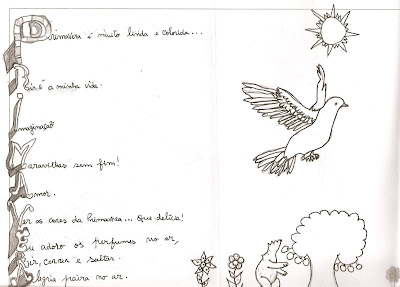 Primavera é muito linda e colorida...
é a minha vida.
Imaginação
Maravilhas sem fim!
Amor.
Ver as cores da Primavera... Que delícia!
Eu adoro os perfumes no ar,
Rir, correr e saltar.
Alegria paira no ar.